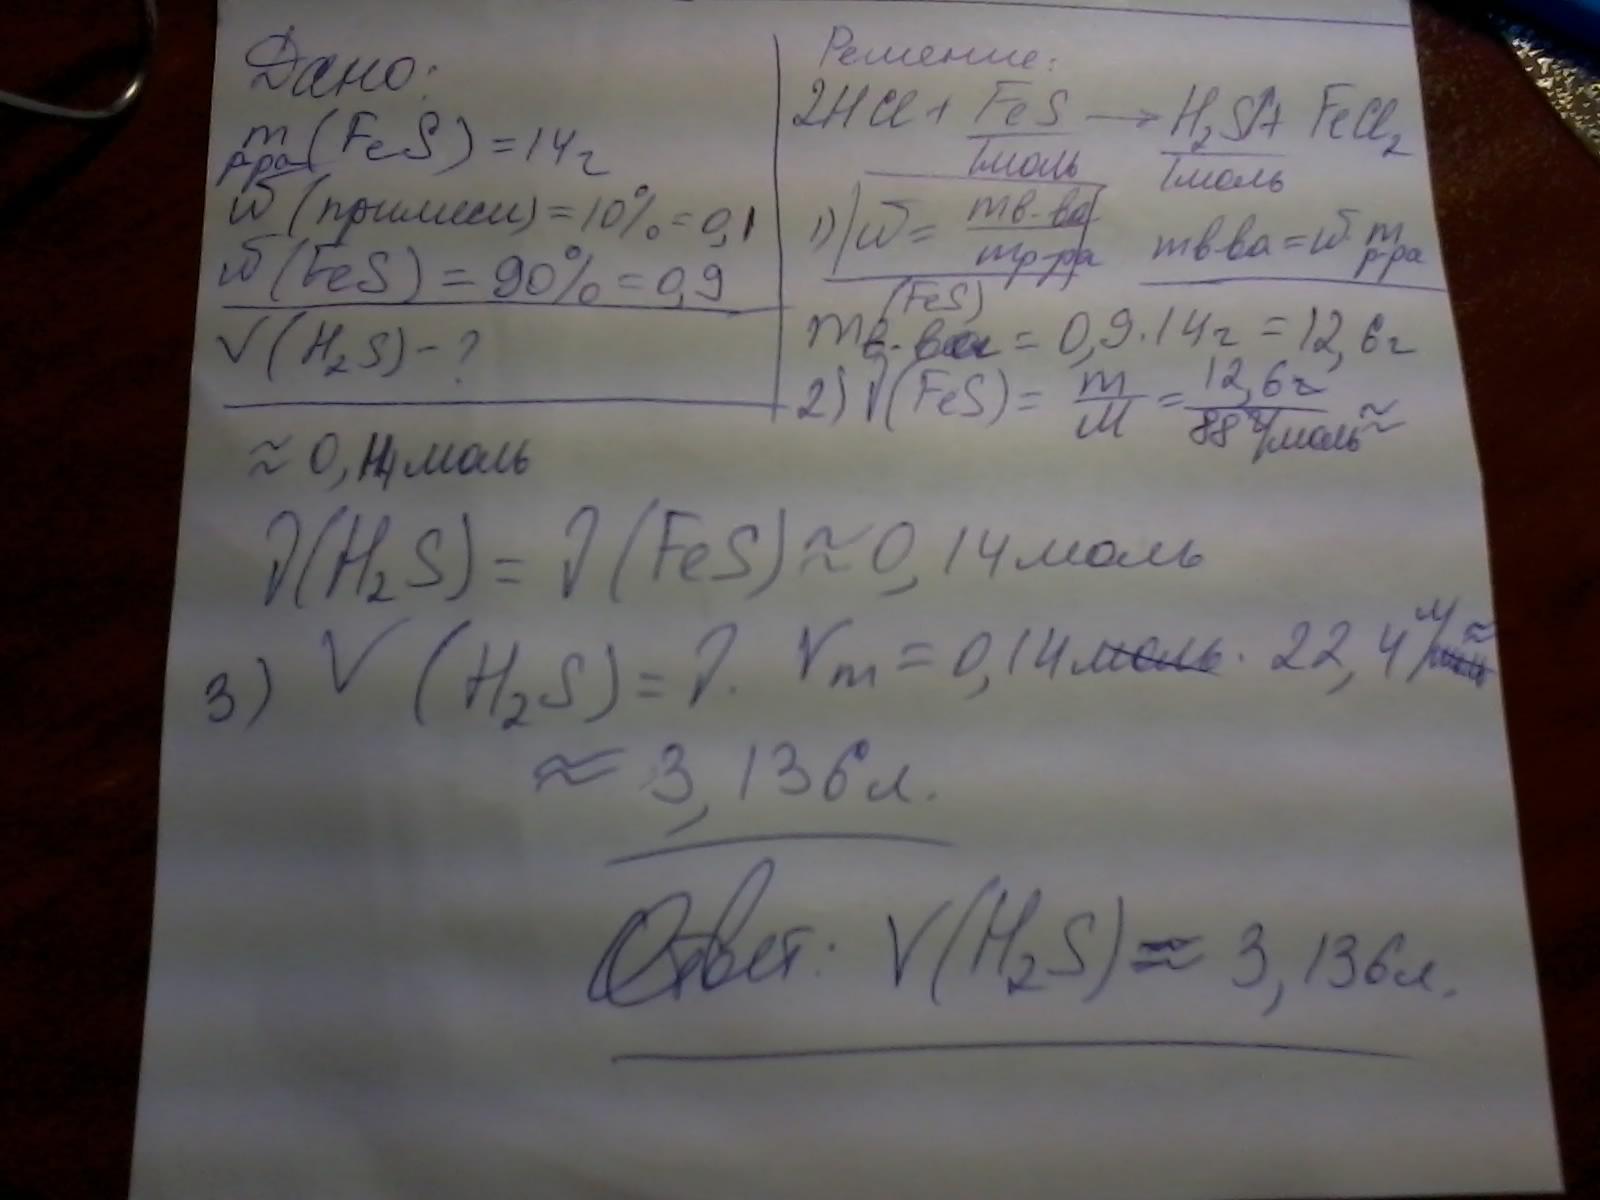 Дано:
m р-ра (FeS) = 14г
ω (примеси) = 10% = 0,1
ω (FeS) = 90% = 0,9
V (H₂S) - ?
Решение:
2HCl + FeS → H₂S↑ + FeCl₂
1моль 1моль
1) ω = mв-ва / mр-ра mв-ва = ω · m р-ра
mв-ва (FeS) = 0,9 · 14г = 12,6г
2) ν(FeS) = m / M = 12,6г / 88 г/моль ≈
≈ 0,14 моль
ν(H₂S) = ν(FeS) ≈ 0,14 моль
3) V (H₂S) = ν · Vm = 0,14 моль · 22,4 л/моль ≈
≈ 3,136л.
Ответ: V(H₂S) ≈ 3,136л.